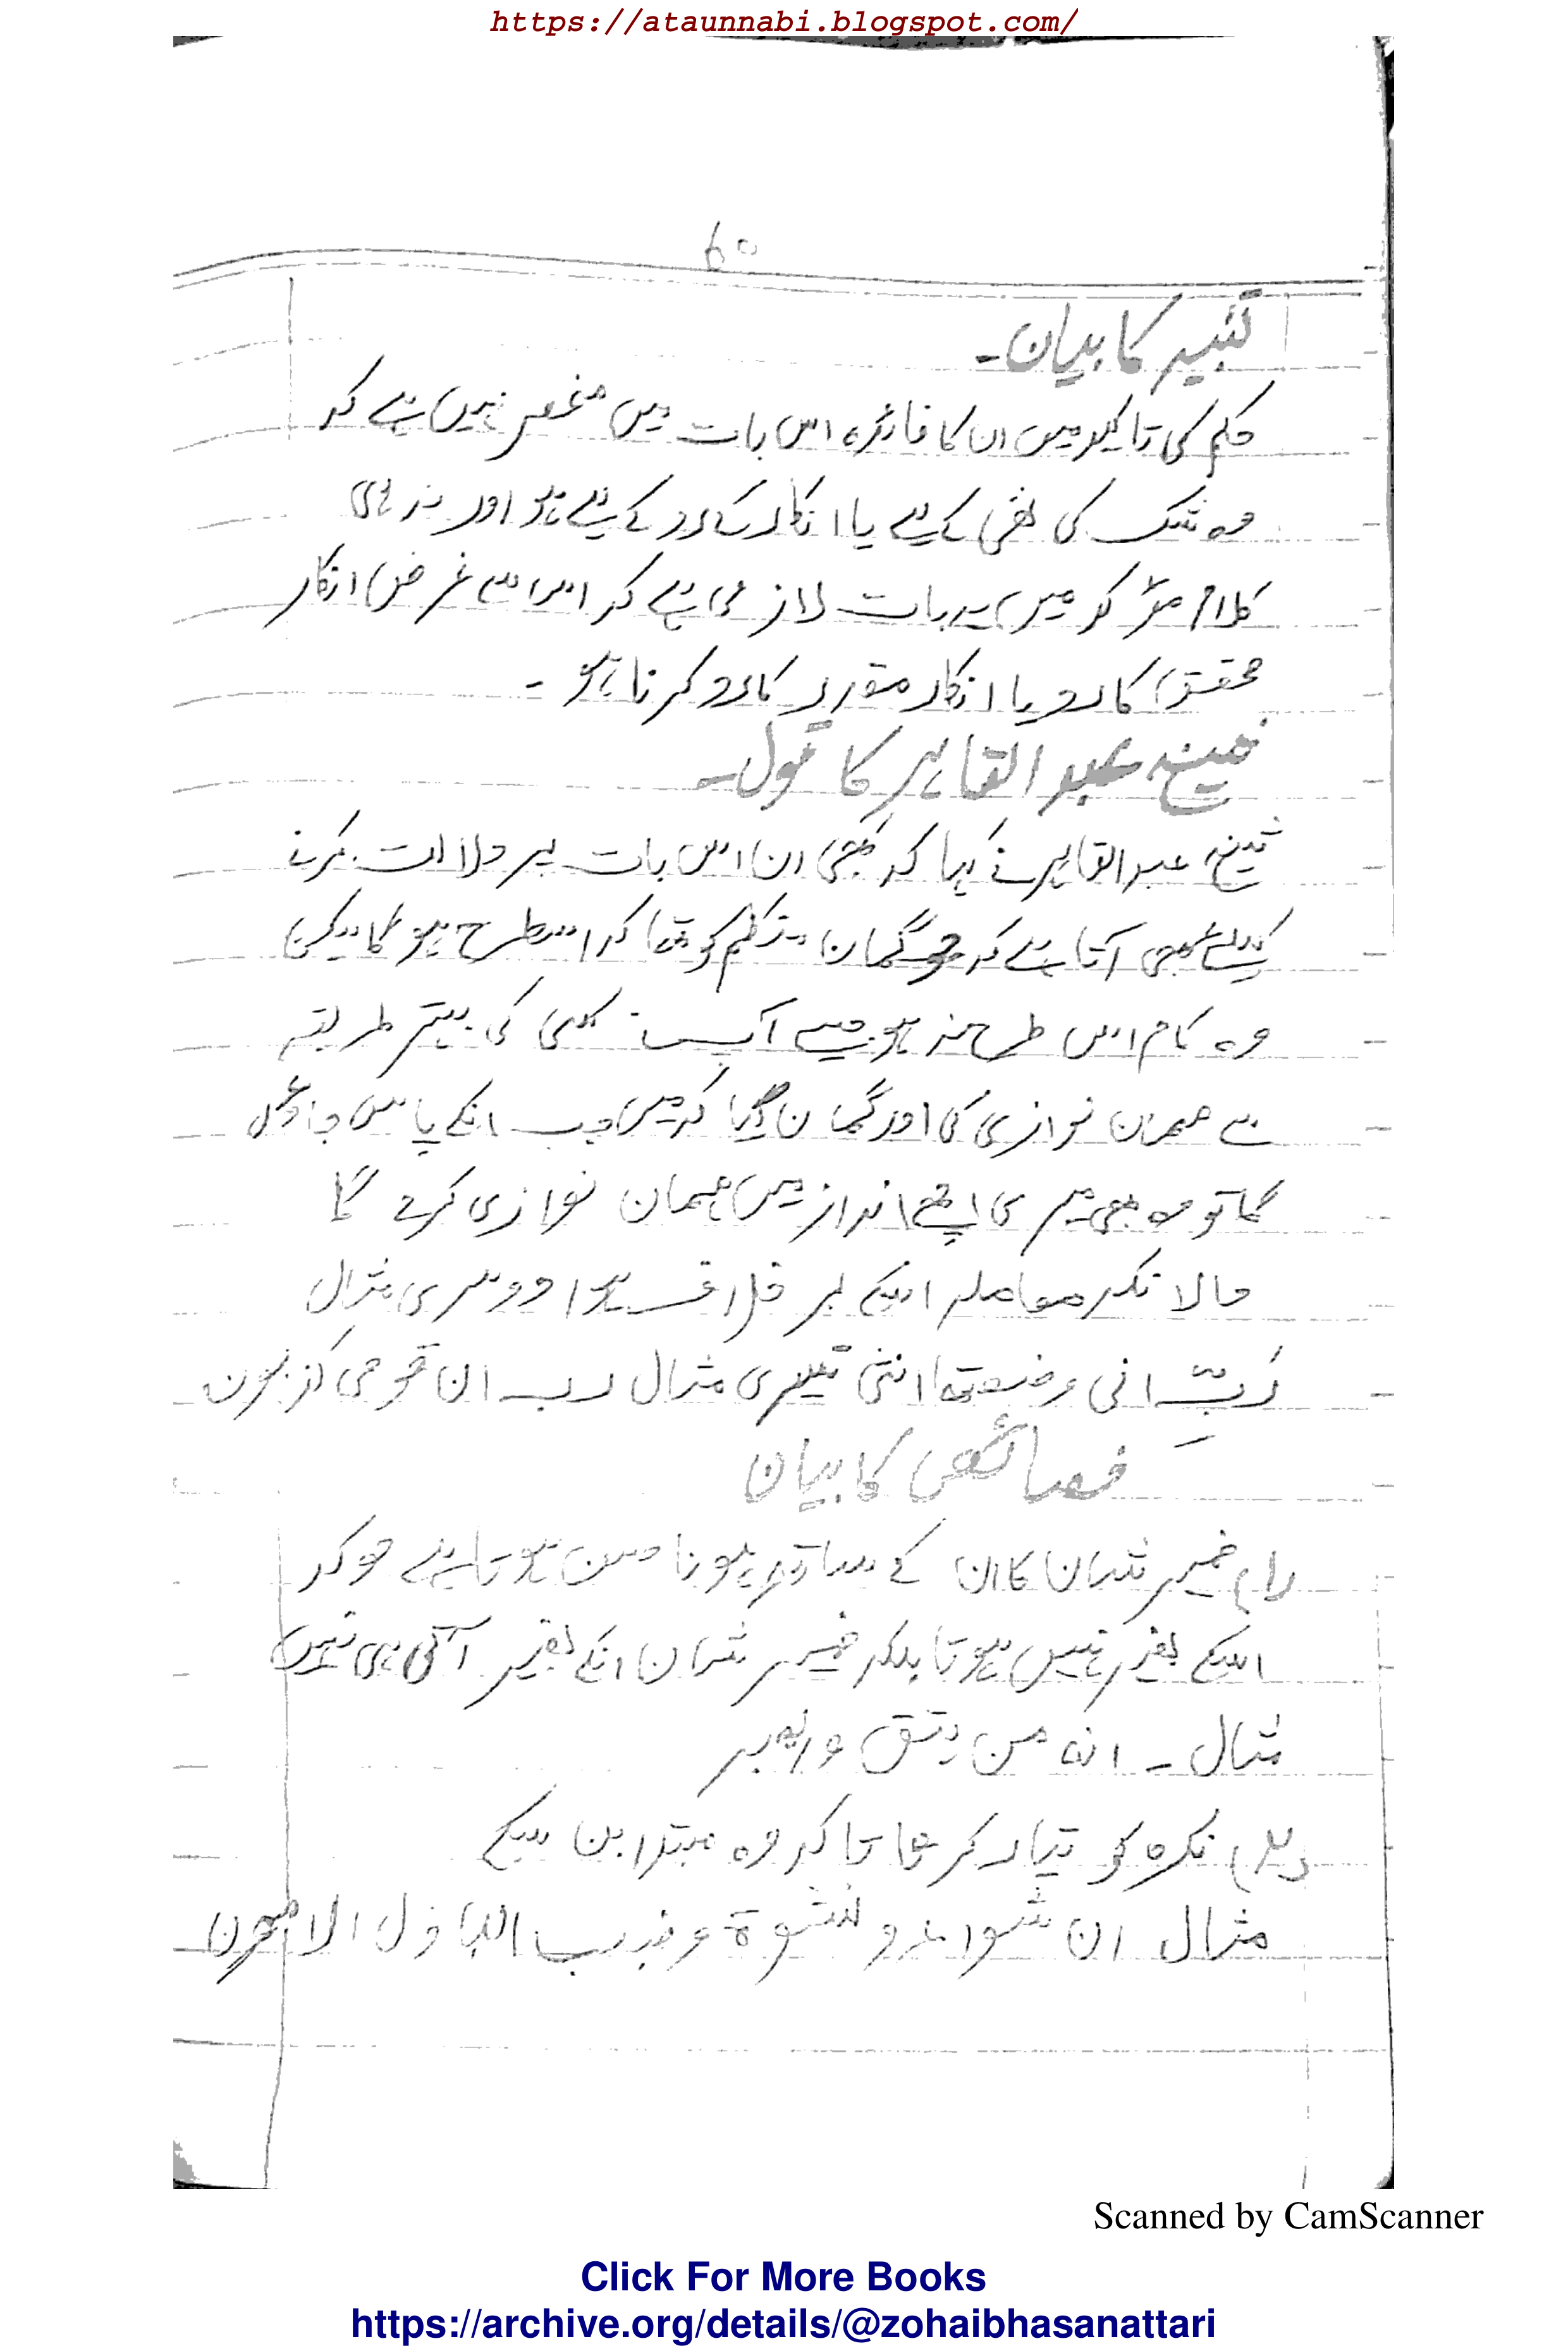 https://ataunnabi.blogspot.com/
60
تنبیہ کا بیان۔
حکم کی تاکید میں ان کا فائدہ اس بات میں منحصر نہیں ہے کہ
وہ شک کی نفی کے لیے یا انکار کے رد کے لیے ہو اور نہ ہی
کلام مؤکد میں یہ بات لازمی ہے کہ اس سے غرض انکار
محقق کا رد یا انکار مقدر کا رد کرنا ہو۔
شیخ عبدالقاہر کا قول۔
شیخ عبدالقاہر نے کہا کہ کبھی ان اس بات پر دلالت کرنے
کیلئے بھی آتا ہے کہ جو گمان متکلم کو تھا کہ اسطرح ہو گا لیکن
وہ کام اس طرح نہ ہو جیسے آپ نے کسی کی بہتر طریقہ
سے مہمان نوازی کی اور گمان کیا کہ میں جب انکے پاس جاؤں
گا تو وہ بھی میری اچھے انداز میں مہمان نوازی کرے گا
حالانکہ معاملہ اسکے بر خلاف ہوا دوسری مثال
رَبِّ انی وضعتھا انثی تیسری مثال رب ان قومی کذبون
خصائص کا بیان
(۱) ضمیر شان کا ان کے ساتھ ہونا حسن ہوتا ہے جو کہ
اسکے بغیر نہیں ہوتا بلکہ ضمیر شان انکے بغیر آتی ہی نہیں
مثال ۔ انہ من یتق ویصبر
(۲) نکرہ کو تیار کرنا تا کہ وہ مبتدا بن سکے
مثال ان شواء و نشوۃ وخبب البازل الامون
Scanned by CamScanner
Click For More Books
https://archive.org/details/@zohaibhasanattari